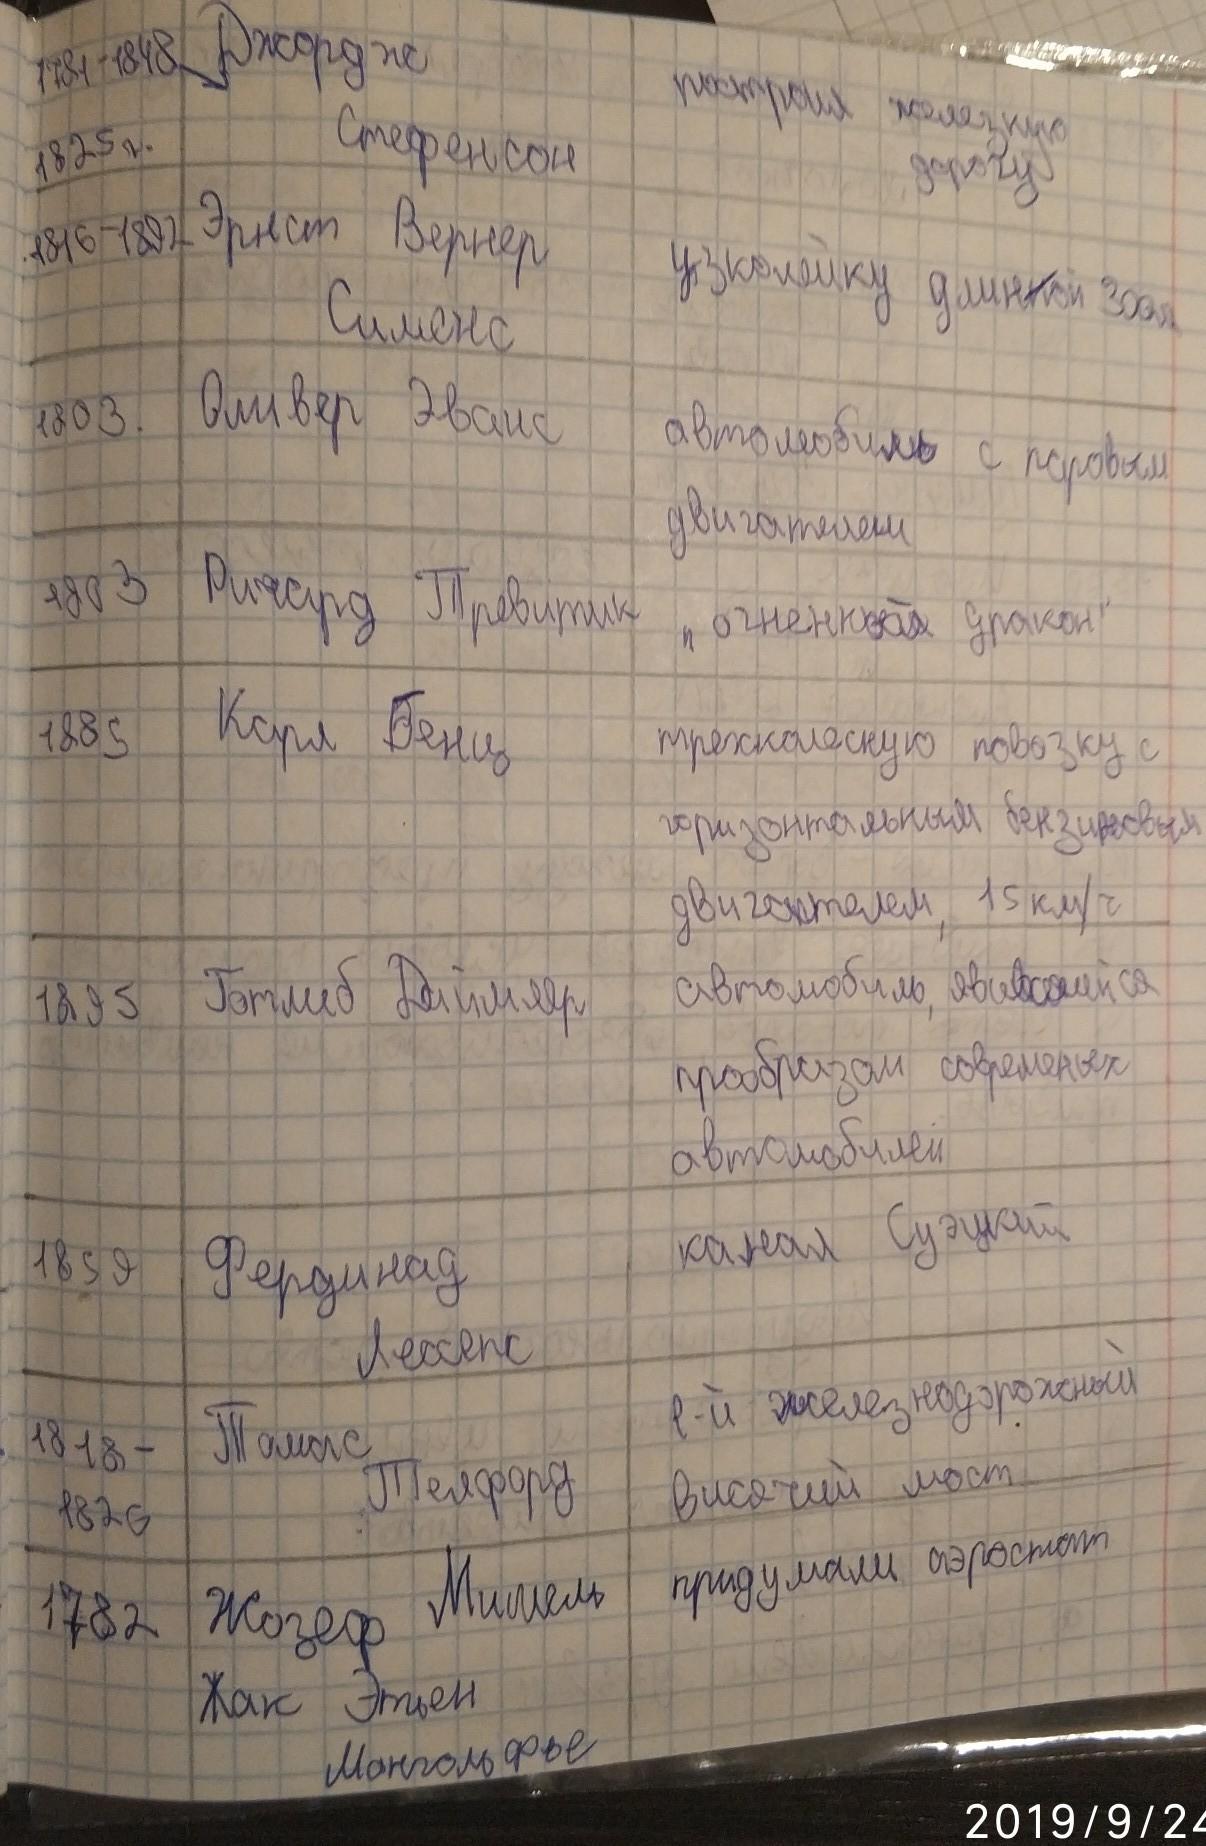 1781-1848 Джордж построил железную
1825г. Стефенсон дорогу
1816-1892 Эрнст Вернер узколейку длинной 300м
Сименс
1803. Оливер Эванс автомобиль с паровым
двигателем
1803 Ричард Тревитик "огненный дракон"
1885 Карл Бенц трехколесную повозку с
горизонтальным бензиновым
двигателем, 15 км/ч
1895 Готлиб Даймлер автомобиль, явившийся
прообразом современых
автомобилей
1859 Фердинад канал Суэцкий
Лессепс
1818- Томас 1-й железнодорожный
1826 Телфорд висячий мост
1782 Жозеф Мишель придумали аэростат
Жак Этьен
Монгольфье
2019/9/24